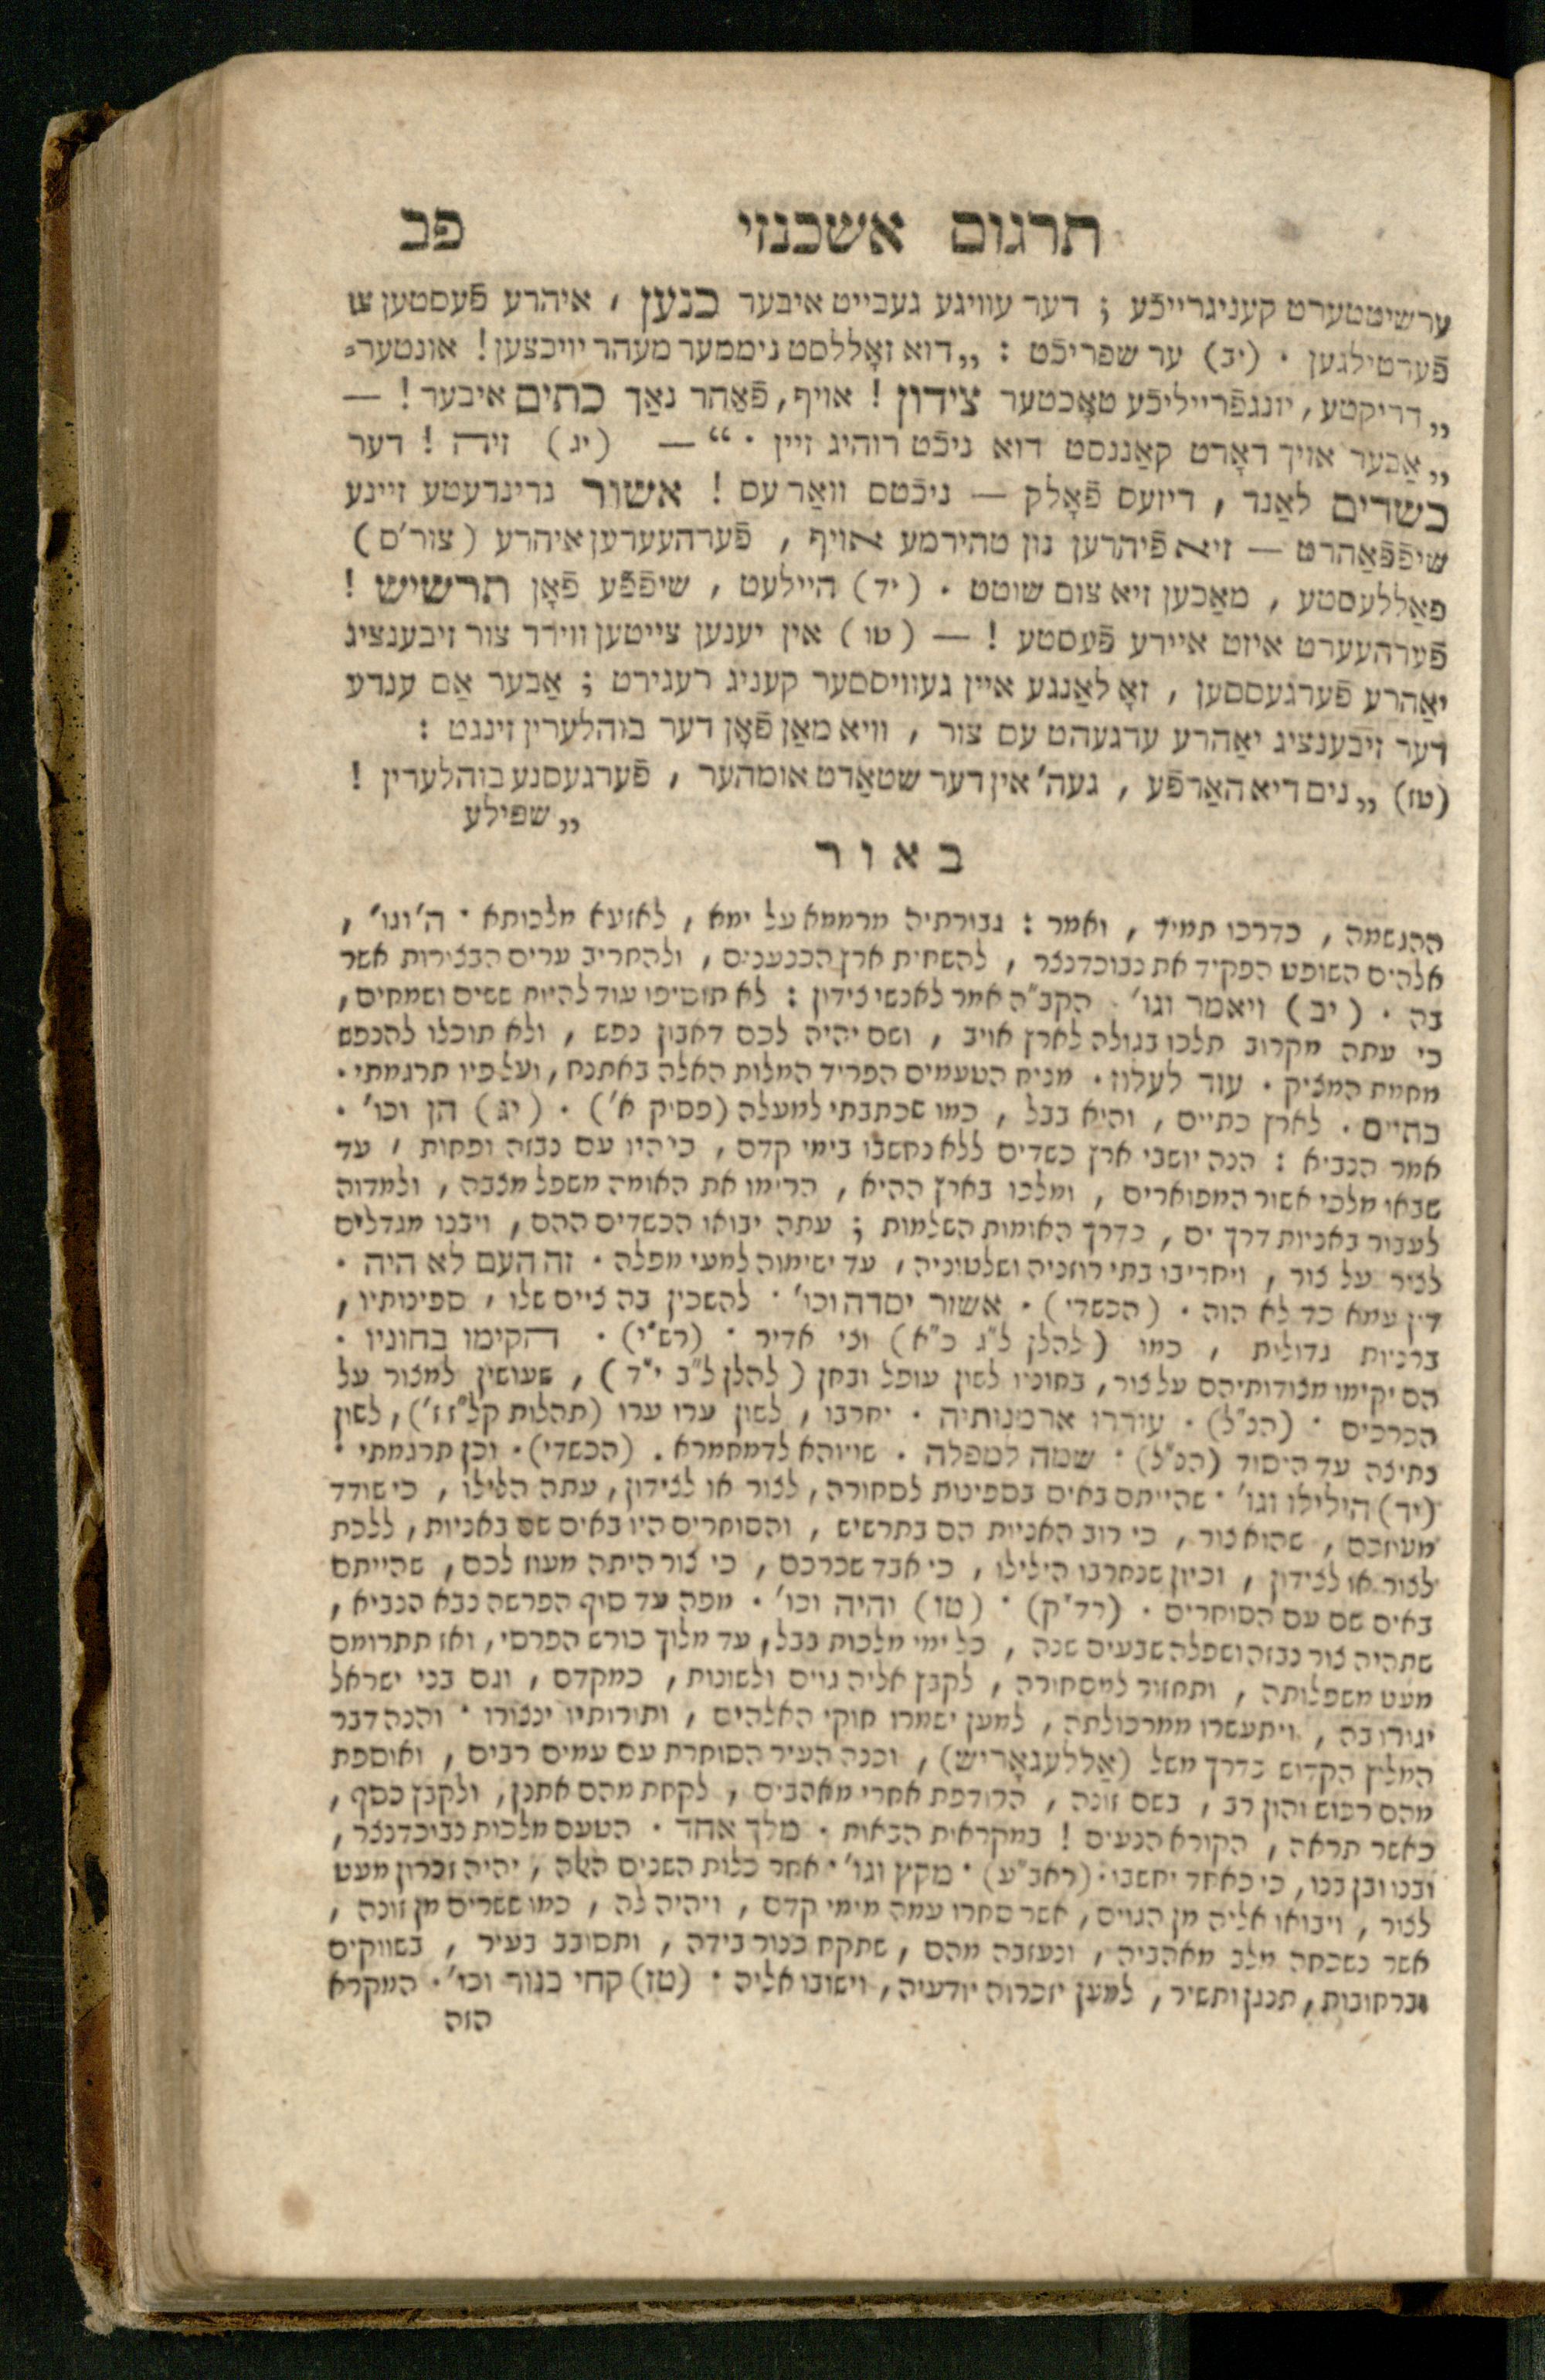 תרגום אשכנזי פב
ערשיטטערט קעניגרייכֿע ; דער עוויגע געבייט איבער כנען , איהרע פֿעסטען צו
פֿערטילגען . (יב) ער שפריכֿט : „דוא זאָללסט ניממער מעהר יויכצען! אונטער⸗
„דריקטע, יונגפֿרייליכֿע טאָכטער צידון ! אויף, פֿאַהר נאַך כתים איבער ! —
„אַבער אויך דאָרט קאַננסט דוא ניכֿט רוהיג זיין .“ — (יג) זיה ! דער
כשדים לאַנד , דיזעס פֿאָלק — ניכֿטס וואַר עס ! אשור גרינדעטע זיינע
שיפֿפֿאַהרט — זיא פֿיהרען נון טהירמע אויף , פֿערהעערען איהרע (צור'ס)
פאַללעסטע , מאַכען זיא צום שוטט . (יד) היילעט , שיפֿפֿע פֿאָן תרשיש !
פֿערהעערט איזט איירע פֿעסטע ! — (טו) אין יענען צייטען ווירד צור זיבענציג
יאַהרע פֿערגעססען , זאָ לאַנגע איין געוויססער קעניג רעגירט ; אַבער אַם ענדע
דער זיבענציג יאַהרע ערגעהט עס צור , וויא מאַן פֿאָן דער בוהלערין זינגט :
(טז) „נים דיא האַרפֿע , געה' אין דער שטאַדט אומהער , פֿערגעסנע בוהלערין !
„שפילע
באור
ההגשמה , כדרכו תמיד , ואמר : גבורתיה מרממא על ימא , לאזעא מלכותא . ה' וגו' ,
אלהים השופט הפקיד את נבוכדנצר , להשחית ארץ הכנענים , ולהחריב ערים הבצירות אשר
בה . (יב) ויאמר וגו' . הקב"ה אמר לאנשי צידון : לא תוסיפו עוד להיות ששים ושמחים ,
כי עתה מקרוב תלכו בגולה לארץ אויב , ושם יהיה לכם דאבון נפש , ולא תוכלו להנפש
מחמת המציק . עוד לעלוז . מניח הטעמים הפריד המלות האלה באתנח , ועל פיו תרגמתי .
כתיים . לארץ כתיים , והיא בבל , כמו שכתבתי למעלה (פסיק א') . (יג) הן וכו' .
אמר הנביא : הנה יושבי ארץ כשדים ללא נחשבו בימי קדם , כי היו עם נבזה ופחות , עד
שבאו מלכי אשור המפוארים , ומלכו בארץ ההיא , הרימו את האומה משפל מצבה , ולמדוה
לעבור באניות דרך ים , כדרך האומות השלמות ; עתה יבואו הכשדים ההם , ויבנו מגדלים
לציר על צור , ויחריבו בתי רוזניה ושלטיניה , עד ישימוה למעי מפלה . זה העם לא היה .
דין עמא כד לא הוה . (הכשדי) . אשור יסדה וכו' . להשכין בה ציים שלו , ספינותיו ,
ברניות גדולית , כמו (להלן ל"ג כ"א) וצי אדיר . (רש"י) . הקימו בחוניו .
הם יקימו מצודותיהם על צור , בחוניו לשון עופל ובחן (להלן ל"ב י"ד) , שעושין למצור על
הכרכים . (הנ"ל) . עוררו ארמנותיה . יחרבו , לשון ערו ערו (תהלות קל"ז ז') , לשון
נתיצה עד היסוד (הנ"ל) . שמה למפלה . שויוהא לדמחמרא . (הכשדי) . וכן תרגמתי .
(יד) הילילו וגו' . שהייתם באים בספינות לסחורה , לצור או לצידון , עתה הלילו , כי שודד
מעוזכם , שהוא צור , כי רוב האניות הם בתרשיש , והסוחרים היו באים שם באניות , ללכת
לצור או לצידון , וכיון שנחרבו הילילו , כי אבד שכרכם , כי צור היתה מעוז לכם , שהייתם
באים שם עם הסוחרים . (רד"ק) . (טו) והיה וכו' . מפה עד סיף הפרשה נבא הנביא ,
שתהיה צור נבזה ושפלה שבעים שנה , כל ימי מלכות בבל , עד מלוך כורש הפרסי , ואז תתרומם
מעט משפלותה , ותחזור למסחירה , לקבץ אליה גוים ולשונות , כמקדם , וגם בני ישראל
יגורו בה , ויתעשרו ממרכולתה , למען ישמרו חוקי האלהים , ותורותיו ינצורו . והנה דבר
המליץ הקדוש בדרך משל (אַללעגאָריש) , וכנה העיר הסוחרת עם עמים רבים , ואוספת
מהם רכוש והון רב , בשם זונה , הרודפת אחרי מאהבים , לקחת מהם אתנן , ולקבץ כסף ,
כאשר תראה , הקורא הנעים ! במקראית הבאות . מלך אחד . הטעם מלכות נביכדנצר ,
ובנו ובן בנו , כי כאחד יחשבו . (ראב"ע) . מקץ וגו' . אחר כלות השנים האלה , יהיה זכרון מעט
לצור , ויבואו אליה מן הגוים , אשר סחרו עמה מימי קדם , ויהיה לה , כמו ששרים מן זונה ,
אשר נשכחה מלב מאהביה , ונעזבה מהם , שתקח כנור בידה , ותסובב בעיר , בשווקים
וברחובות , תנגן ותשיר , למען יזכרוה יודעיה , וישובו אליה . (טז) קחי כנור וכו' . המקרא
הזה